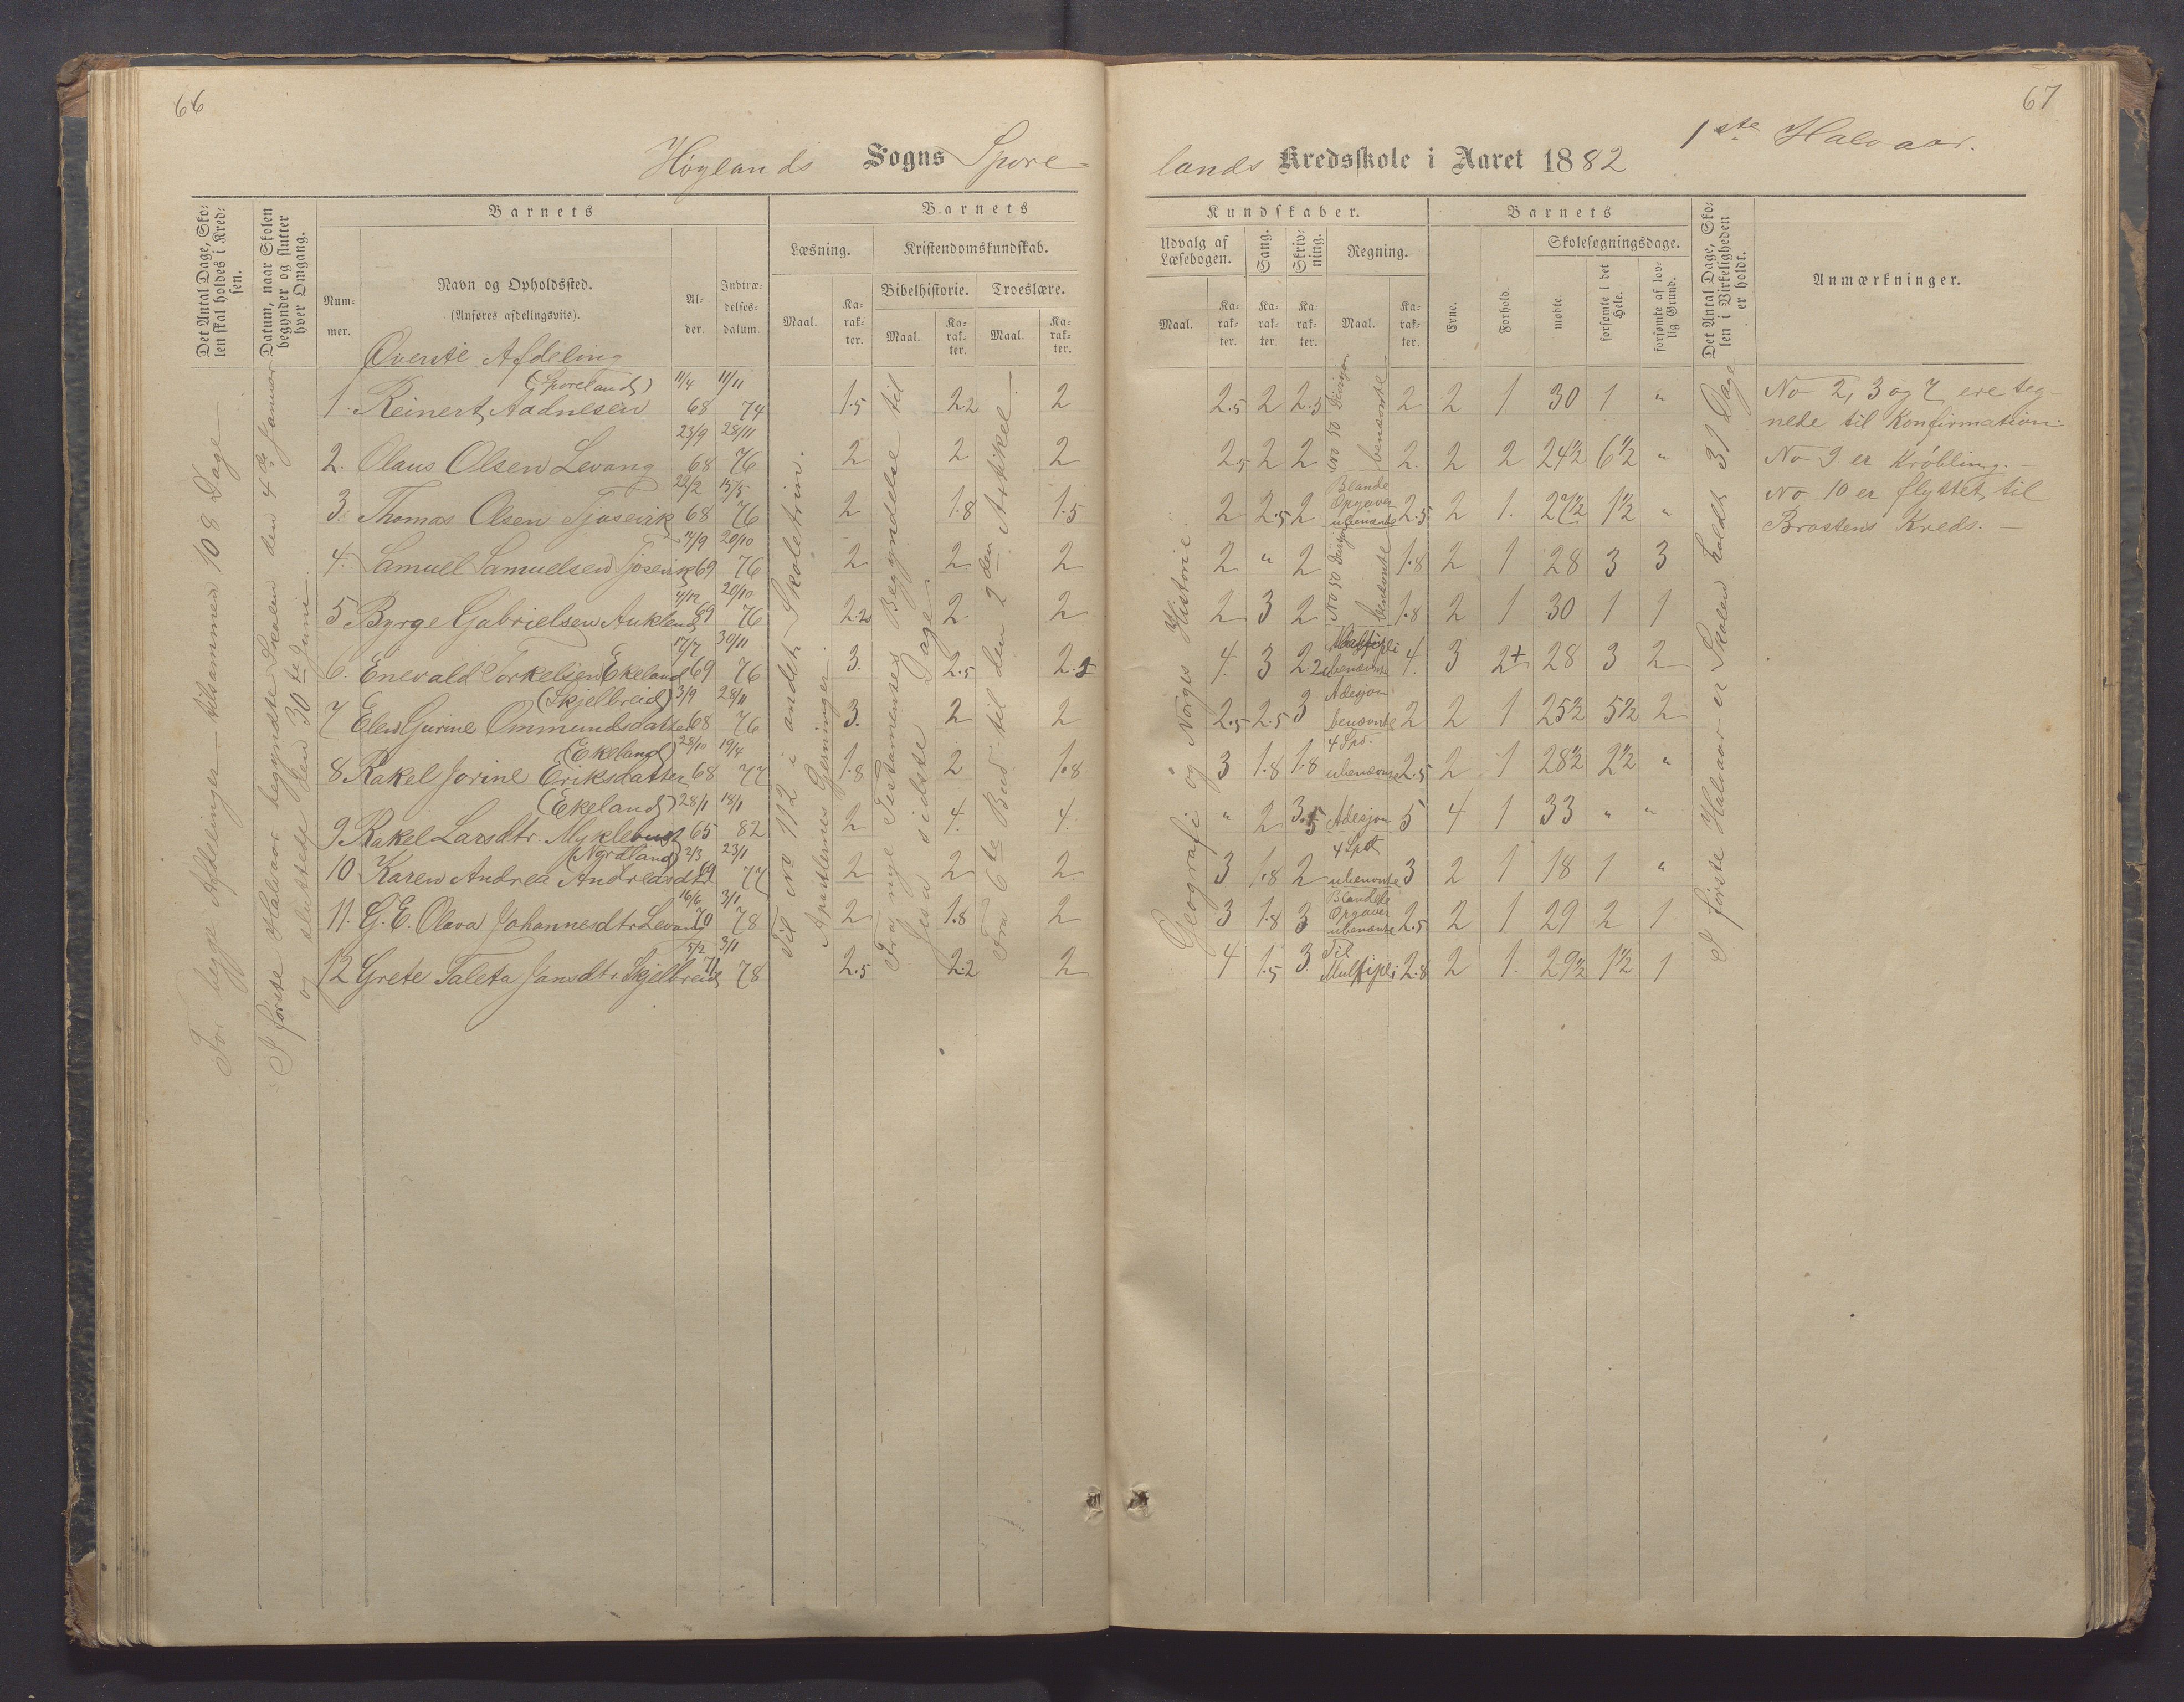 66
Høylands Sogns Spore-
Det Antal Dage, Sko-
len skal holdes i Kred-
sen.
Datum, naar Skolen
begynder og slutter
hver Omgang.
Barnets
Num-
mer.
Navn og Opholdssted.
(Anføres afdelingsviis).
Al-
der.
Indtræ-
delses-
datum.
Barnets
Læsning.
Kristendomskundskab.
Bibelhistorie. Troeslære.
Maal. Ka-
rak-
ter. Maal. Ka-
rak-
ter. Maal. Ka-
rak-
ter.
For begge Afdelinger tilsammen 108 Dage
I første Halvaar begyndte Skolen den 4de Januar
og sluttede den 30te Juni.
Til No 112 i andet Skoletrin.
Apostlernes Gjerninger.
Fra nye Testamentes Begyndelse til
Jesu sidste Dage
Fra 6te Bud til den 2den Artikel
Øverste Afdeling
(Sporeland) 11/4 11/11
1. Reinert Aadnesen 68 74 1.5 2.2 2
23/9 28/11
2. Olaus Olsen Levang 68 76 2 2 2
22/2 15/5
3. Thomas Olsen Tjøsevik 68 76 2 1.8 1.5
14/9 20/10
4. Samuel Samuelsen Tjøsevik 69 76 2 2 2
4/12 20/10
5 Byrge Gabrielsen Aukland 69 76 2.2 2 2
17/7 30/11
6. Enevald Torkelsen Ekeland 69 76 3. 2.5 2.5
(Skjelbreid) 3/9 28/11
7 Elen Gurine Ommundsdatter 68 76 3. 2 2
(Ekeland) 28/10 19/4
8 Rakel Jorine Eriksdatter 68 77 1.8 2 1.8
(Ekeland) 28/1 18/1
9 Rakel Larsdtr. Myklebust 65 82 2 4. 4.
(Nordland) 2/3 23/1
10 Karen Andrea Andreasdtr 69 77 2 2 2
16/6 3/1
11. G. E. Olava Johannesdtr Levang 70 78 2 1.8 2
5/2 3/1
12 Grete Taleta Jansdtr. Skjelbreid 71 78 2.5 2.2 2
67
lands Kredsskole i Aaret 1882 1ste Halvaar.
Kundskaber.
Udvalg af
Læsebogen.
Sang.
Skriv-
ning.
Regning.
Maal. Ka-
rak-
ter. Ka-
rak-
ter. Ka-
rak-
ter. Maal. Ka-
rak-
ter.
Barnets
Evne.
Forhold.
Skolesøgningsdage.
mødte.
forsømte i det
Hele.
forsømte af lov-
lig Grund.
Det Antal Dage, Sko-
len i Virkeligheden
er holdt.
Anmærkninger.
Geografi og Norges Historie
I første Halvaar er Skolen holdt 31 Dage
2.5 2 2.5 No 50 Divisjon benævnte 2 2 1 30 1 "
2.5 2 2 2. 2 2 24½ 6½ "
2 2.5 2 Blande Opgaver ubenævnte 2.5 2 1. 27½ 1½ "
2 " 2 No 50 Divisjon benævnte 1.8 2 1 28 3 3
2 3 2 1.8 2 1 30 1 1
4. 3 2.2 Multipli ubenævnte 4. 3 2+ 28 3 2
2.5 2.5 3 Adesjon benævnte 2 2 1 25½ 5½ 2
3 1.8 1.8 4 Spd. ubenævnte 2.5 2 1 28½ 2½ "
" 2 3.5 Adesjon 5 4 1 33 " "
3 1.8 2 4 Spd ubenævnte 3 2 1 18 1 "
3 1.8 3 Blandede Opgaver ubenævnte 2.5 2 1 29 2 1
4 1.5 3. Til Multipli 2.8 2 1. 29½ 1½ 1
No 2, 3 og 7 ere teg-
nede til Konfirmation.
No 9 er Krøbling. -
No 10 er flyttet til
Brastens Kreds. -